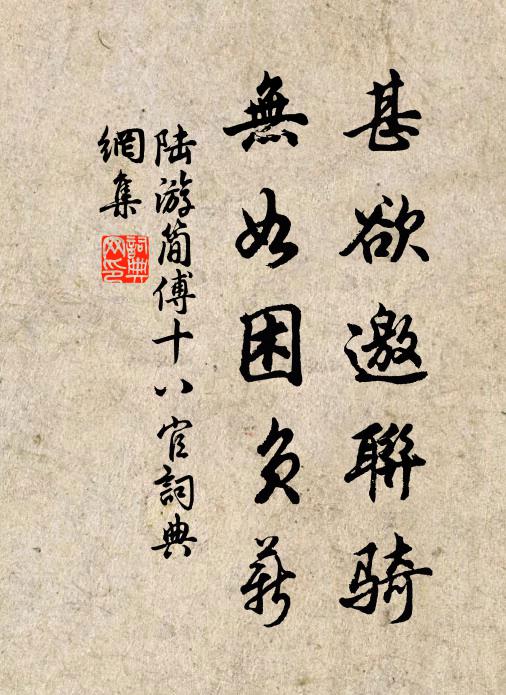 甚欲邀聯骑
無如困负薪
陆游简傅十八官詞典
網集
詞典網印